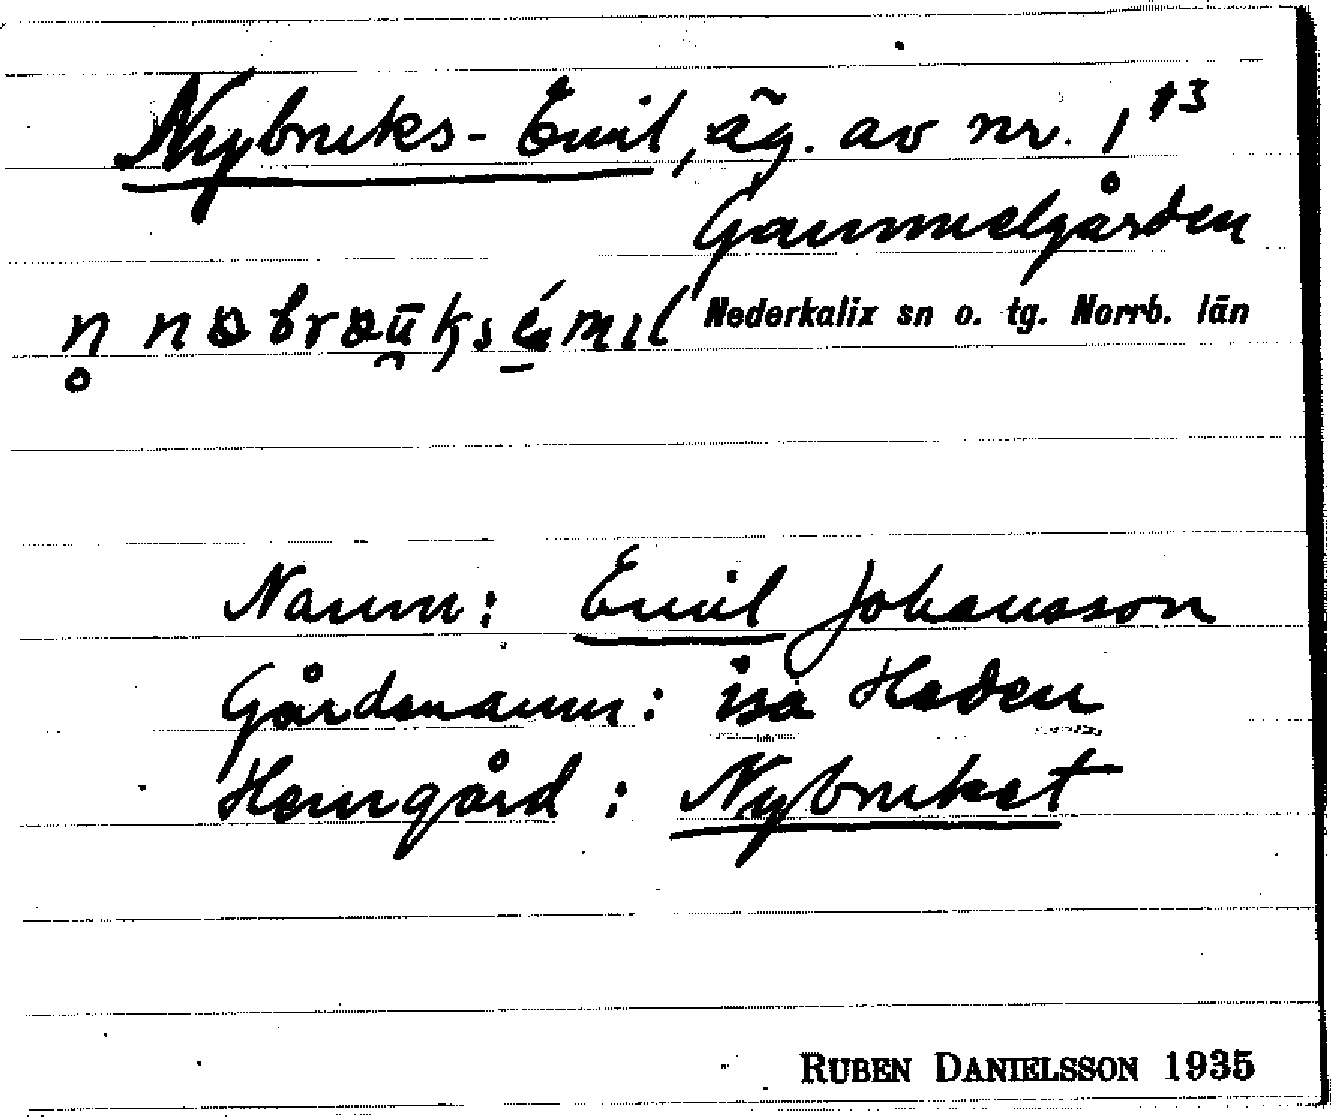 Nybruks-Emil, äg. av nr. 1¹³
Gammelgården
Nederkalix sn o. tg. Norrb. län
Namn: Emil Johansson
Gårdsnamn: isa Heden
Hemgård: Nybruket
RUBEN DANIELSSON 1935